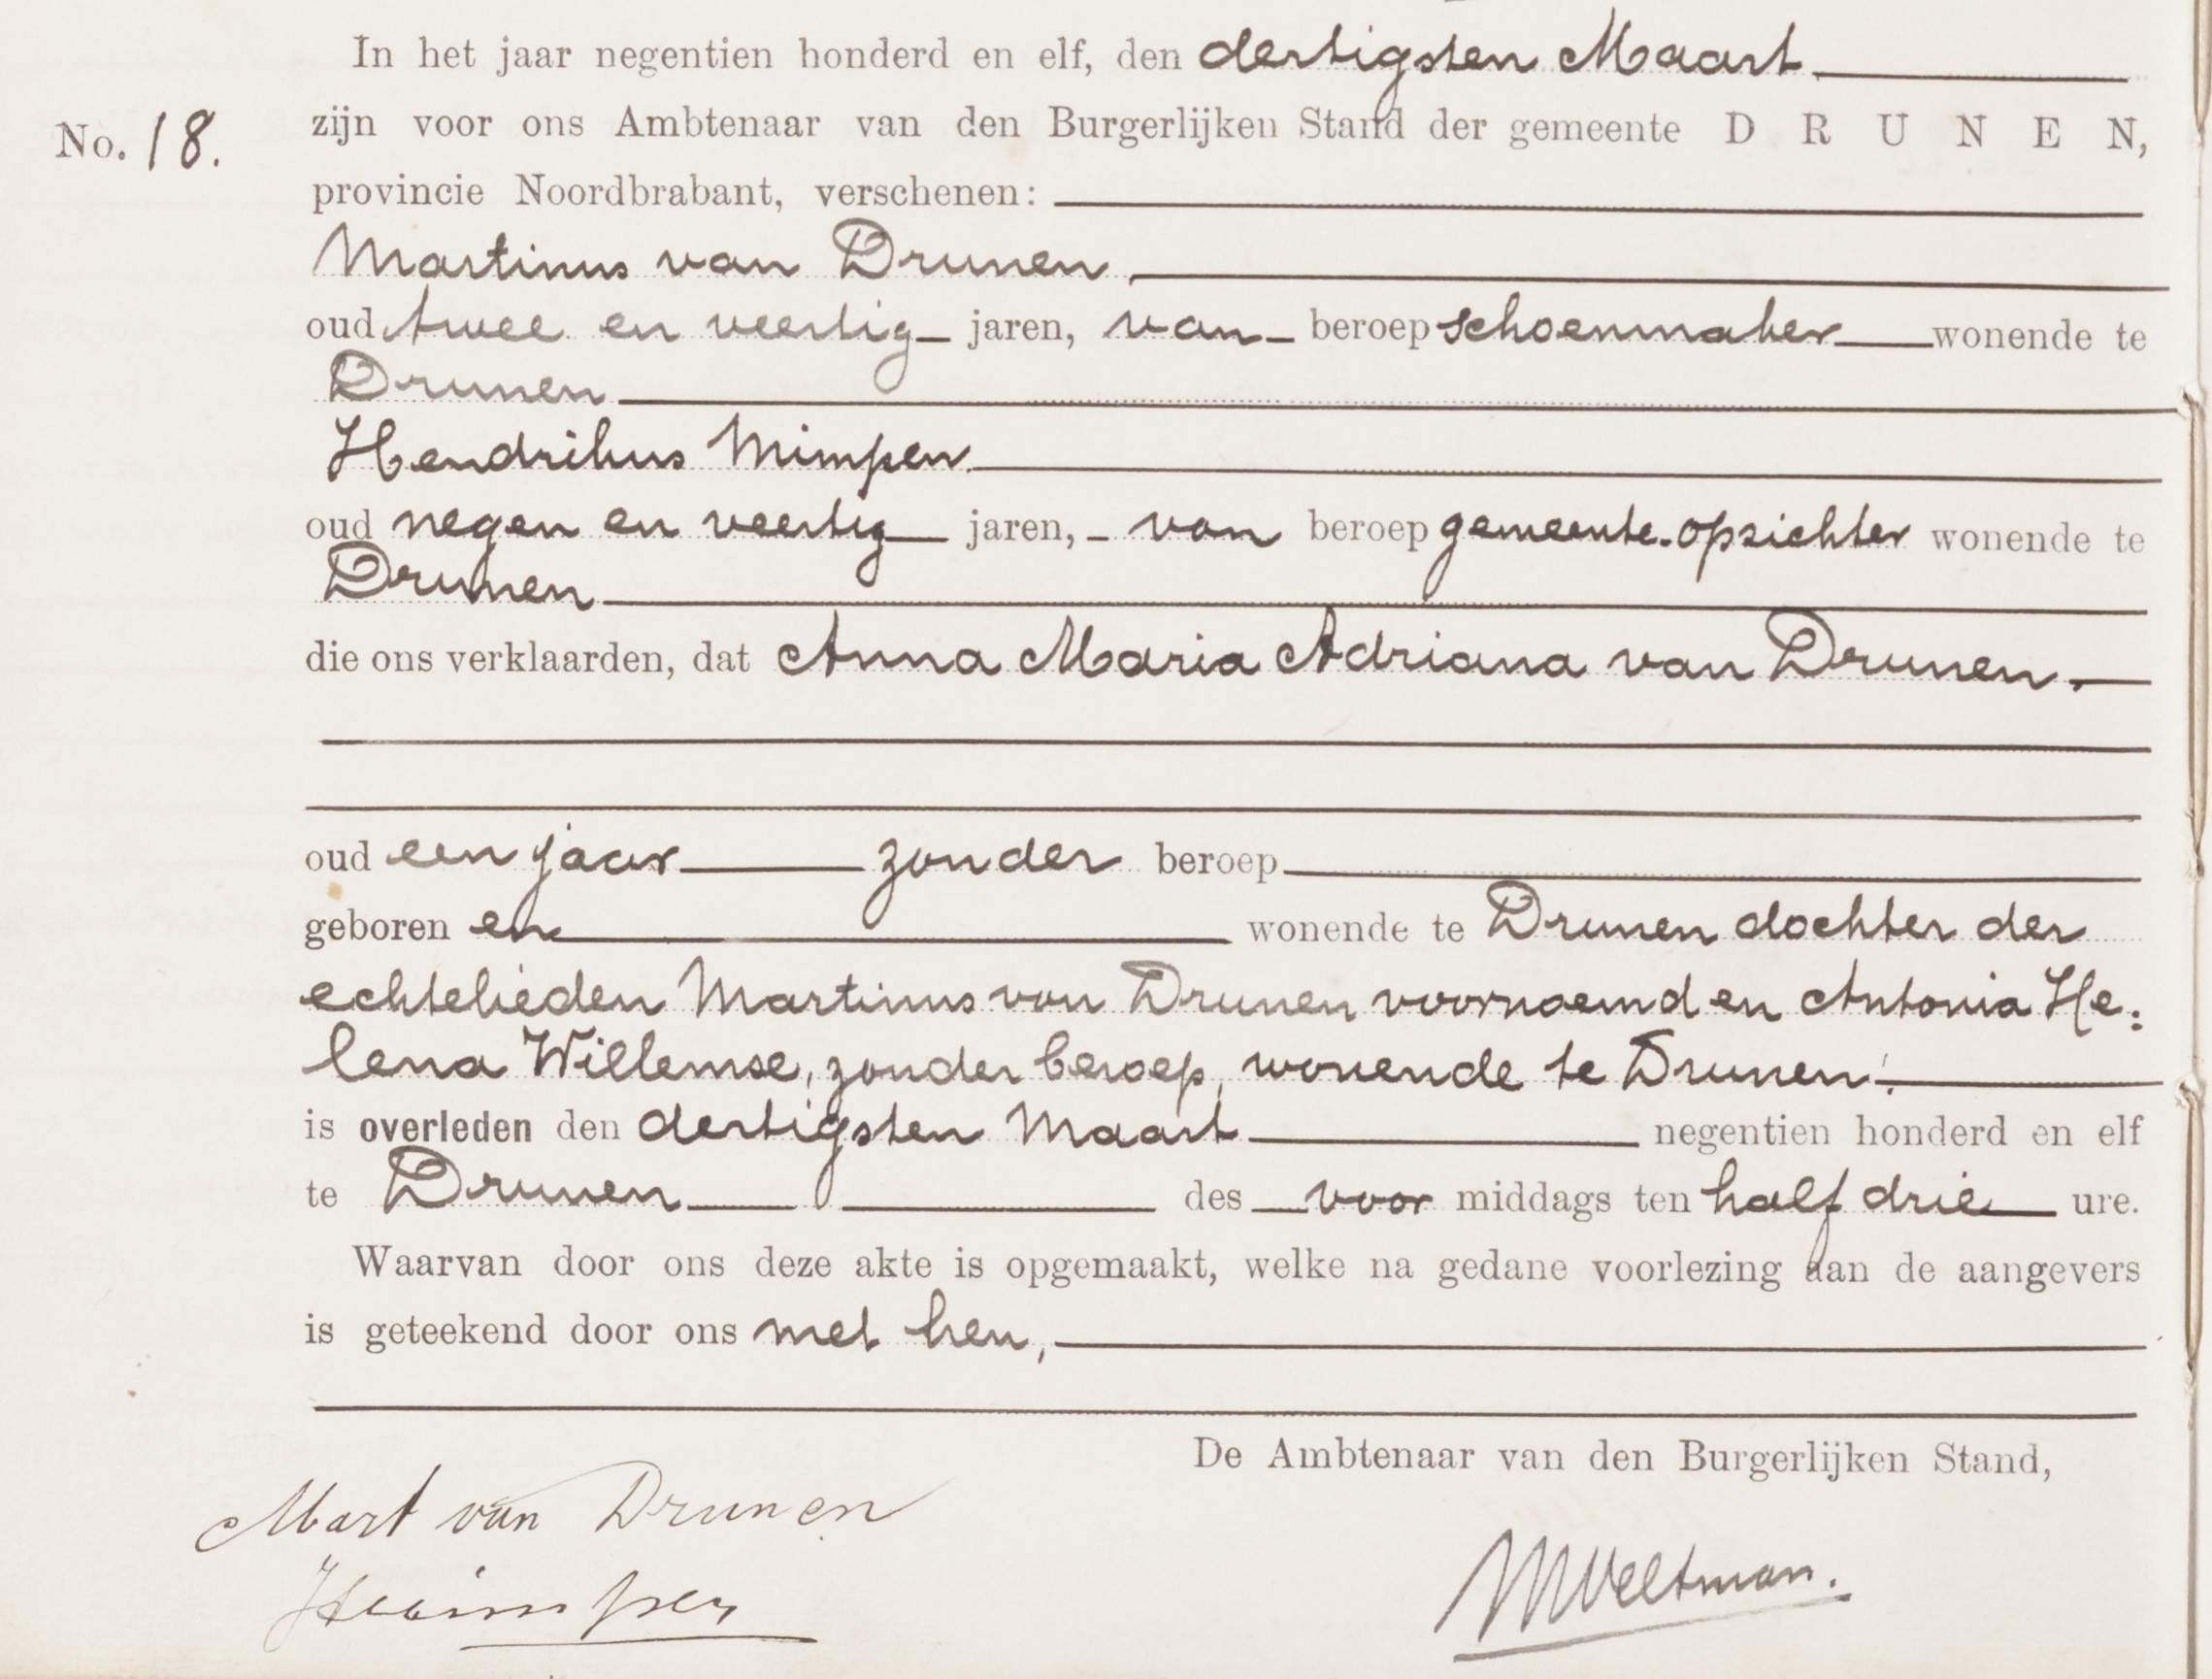 In het jaar negentien honderd en elf, den dertigsten Maart
No. 18.
zijn voor ons Ambtenaar van den Burgerlijken Stand der gemeente DRUNEN,
provincie Noordbrabant, verschenen:
Martinus van Drunen
oud twee en veertig jaren, van beroep schoenmaker wonende te
Drunen
Hendrikus Mimpen
oud negen en veertig jaren, van beroep gemeente-opzichter wonende te
Drunen
die ons verklaarden, dat Anna Maria Adriana van Drunen.
oud een jaar zonder beroep
geboren en wonende te Drunen dochter der
echtelieden Martinus van Drunen voornoemd en Antonia He:
lena Willemse, zonder beroep, wonende te Drunen.
is overleden den dertigsten Maart negentien honderd en elf
te Drunen des voor middags ten half drie ure.
Waarvan door ons deze akte is opgemaakt, welke na gedane voorlezing aan de aangevers
is geteekend door ons met hen,
De Ambtenaar van den Burgerlijken Stand,
Mart van Drunen
HMimpen
MVeltman.